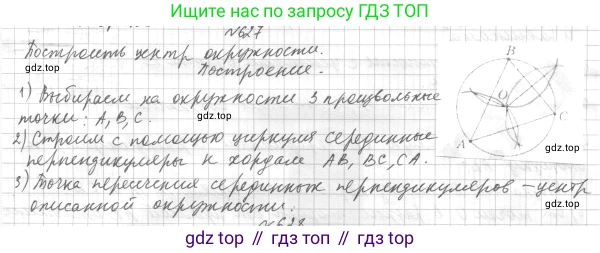 Ищите нас по запросу ГДЗ ТОП
gdz.top
gdz top
gdz.top
№627
Построить центр окружности.
Построение.
1) Выбираем на окружности 3 произвольные
точки: A, B, C.
2) Строим с помощью циркуля серединные
перпендикуляры к хордам AB, BC, CA.
3) Точка пересечения серединных перпендикуляров – центр
описанной окружности.
B
O
C
A
gdz.top
№628
gdz.top
gdz.top // гдз топ // gdz.top